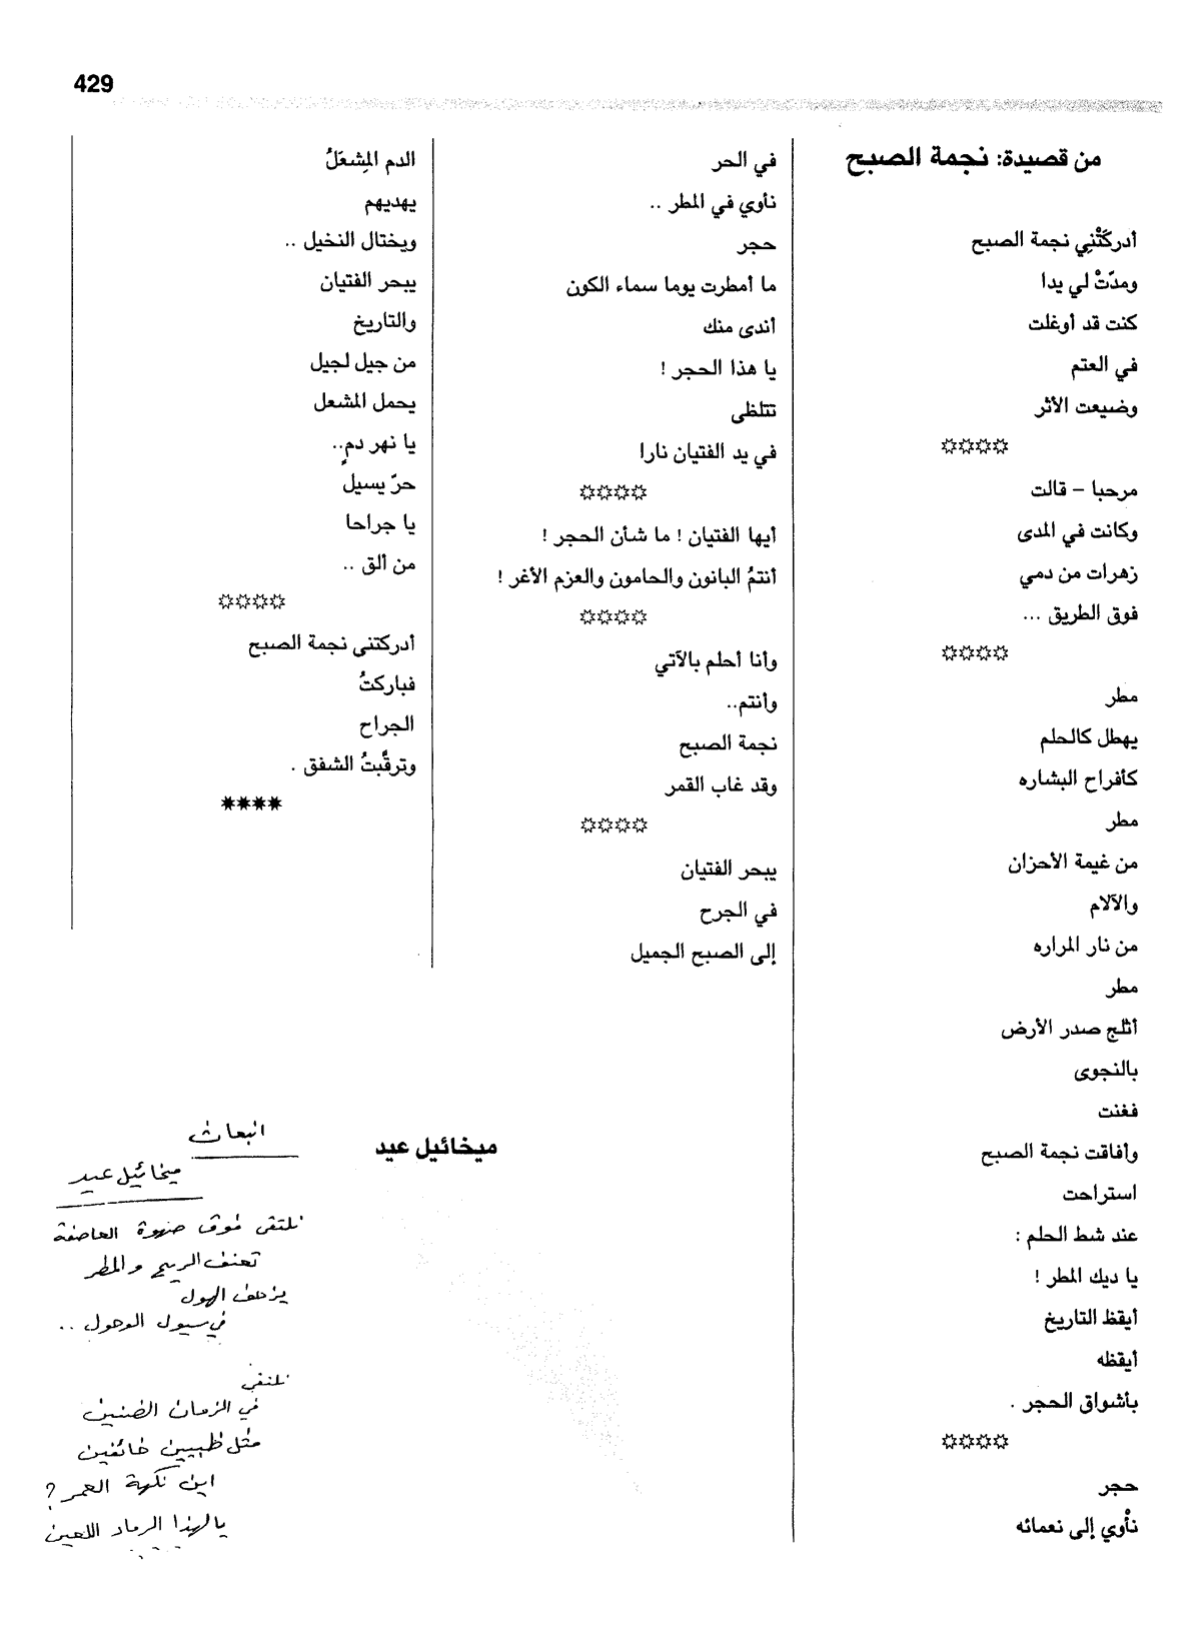 429
من قصيدة: نجمة الصبح
أدركَتْنِي نجمة الصبح
ومدّتْ لي يدا
كنت قد أوغلت
في العتم
وضيعت الأثر
☼☼☼☼
مرحبا – قالت
وكانت في المدى
زهرات من دمي
فوق الطريق ...
☼☼☼☼
مطر
يهطل كالحلم
كأفراح البشاره
مطر
من غيمة الأحزان
والآلام
من نار المراره
مطر
أثلج صدر الأرض
بالنجوى
فغنت
وأفاقت نجمة الصبح
استراحت
عند شط الحلم :
يا ديك المطر !
أيقظ التاريخ
أيقظه
بأشواق الحجر .
☼☼☼☼
حجر
نأْوي إلى نعمائه
في الحر
نأوي في المطر ..
حجر
ما أمطرت يوما سماء الكون
أندى منك
يا هذا الحجر !
تتلظى
في يد الفتيان نارا
☼☼☼☼
أيها الفتيان ! ما شأن الحجر !
أنتمُ البانون والحامون والعزم الأغر !
☼☼☼☼
وأنا أحلم بالآتي
وأنتم..
نجمة الصبح
وقد غاب القمر
☼☼☼☼
يبحر الفتيان
في الجرح
إلى الصبح الجميل
الدم المِشعَلُ
يهديهم
ويختال النخيل ..
يبحر الفتيان
والتاريخ
من جيل لجيل
يحمل المشعل
يا نهر دمٍ..
حرّ يسيلُ
يا جراحا
من ألق ..
☼☼☼☼
أدركتنى نجمة الصبح
فباركتُ
الجراح
وترقَّبتُ الشفق .
✷✷✷✷
ميخائيل عيد
انبعاث
ميخائيل عيد
نلتقي فوق صهوة العاصفة
تعنف الريح والمطر
يزحف الهول
في سيول الوحول ..
نلتقي
في الزمان الضنين
مثل ظبيين خائفين
اين نكهة العمر ?
يالهذا الرماد اللعين